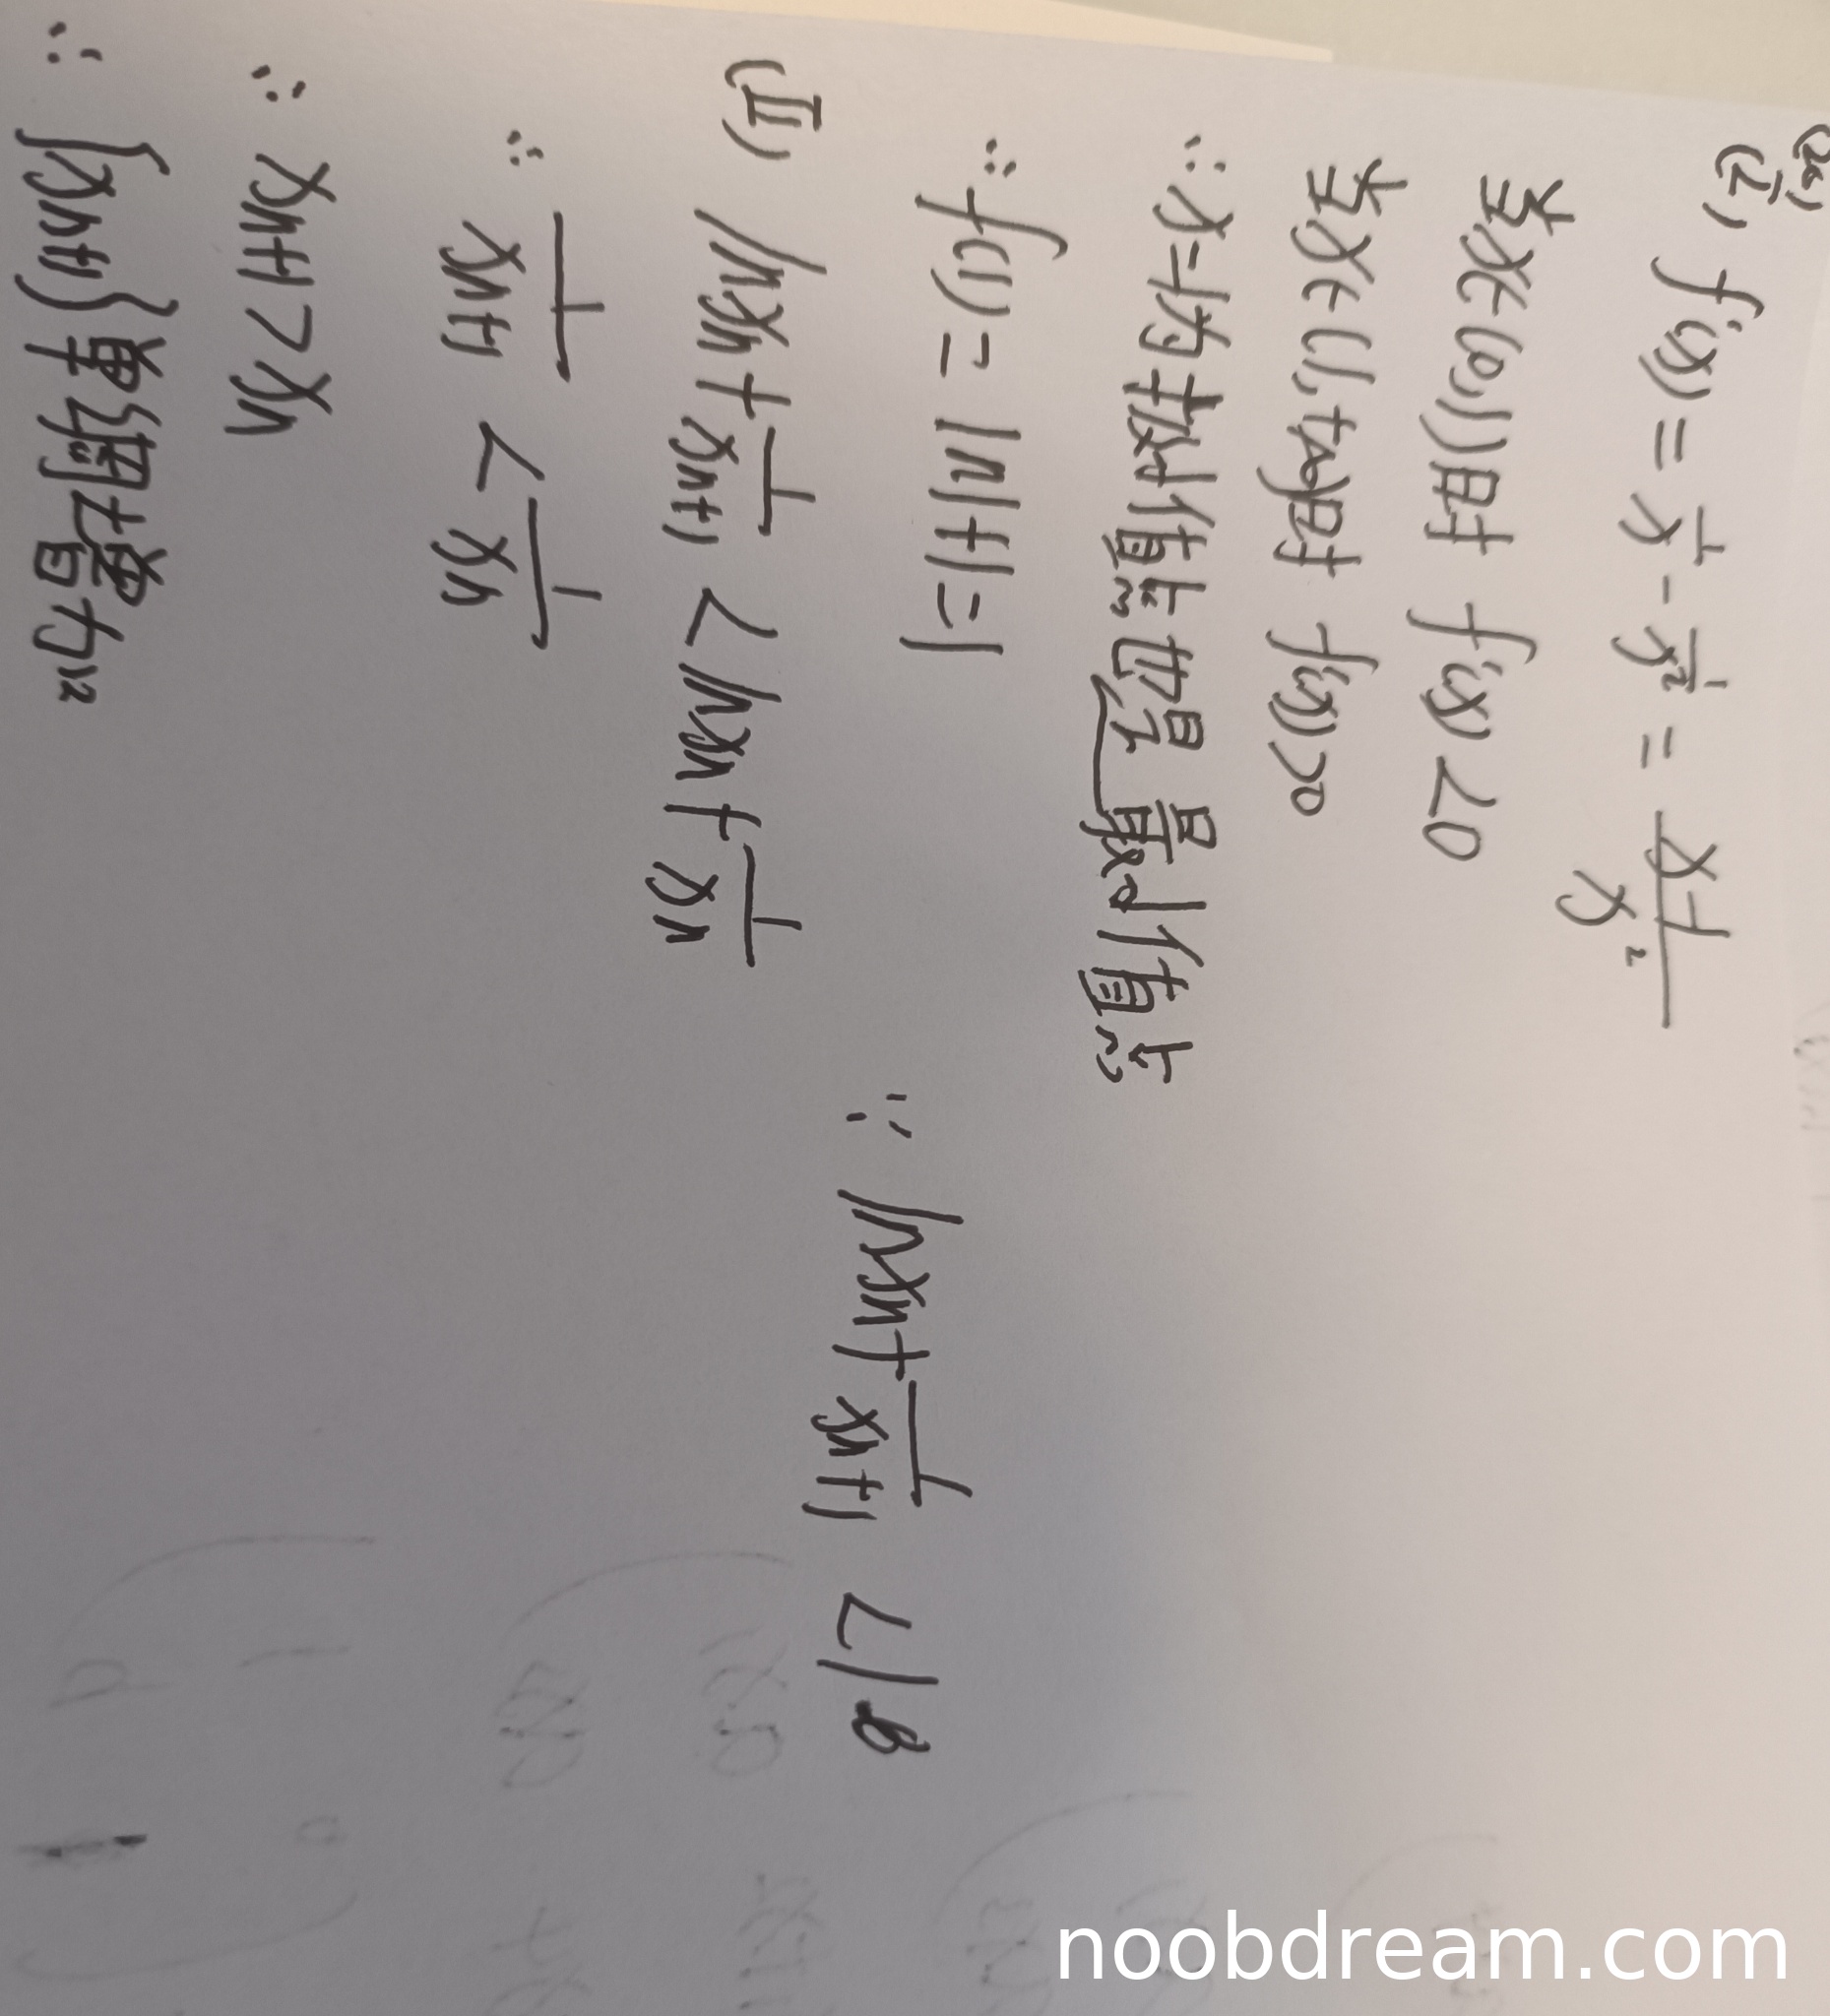 (2)
(I) f'(x) = 1/x - 1/x² = x-1/x²
当x∈(0,1)时 f'(x) <0
当x∈(1,+∞)时 f'(x)>0
∴x=1为极小值点也是最小值点
∴f(1) = ln1+1=1
∵ lnxn+1/xn+1 <1
(II) lnxn+1/xn+1 < lnxn+1/xn
∴ 1/xn+1 < 1/xn
∴ xn+1 > xn
∴ {xn+1}单调增加
noobdream.com